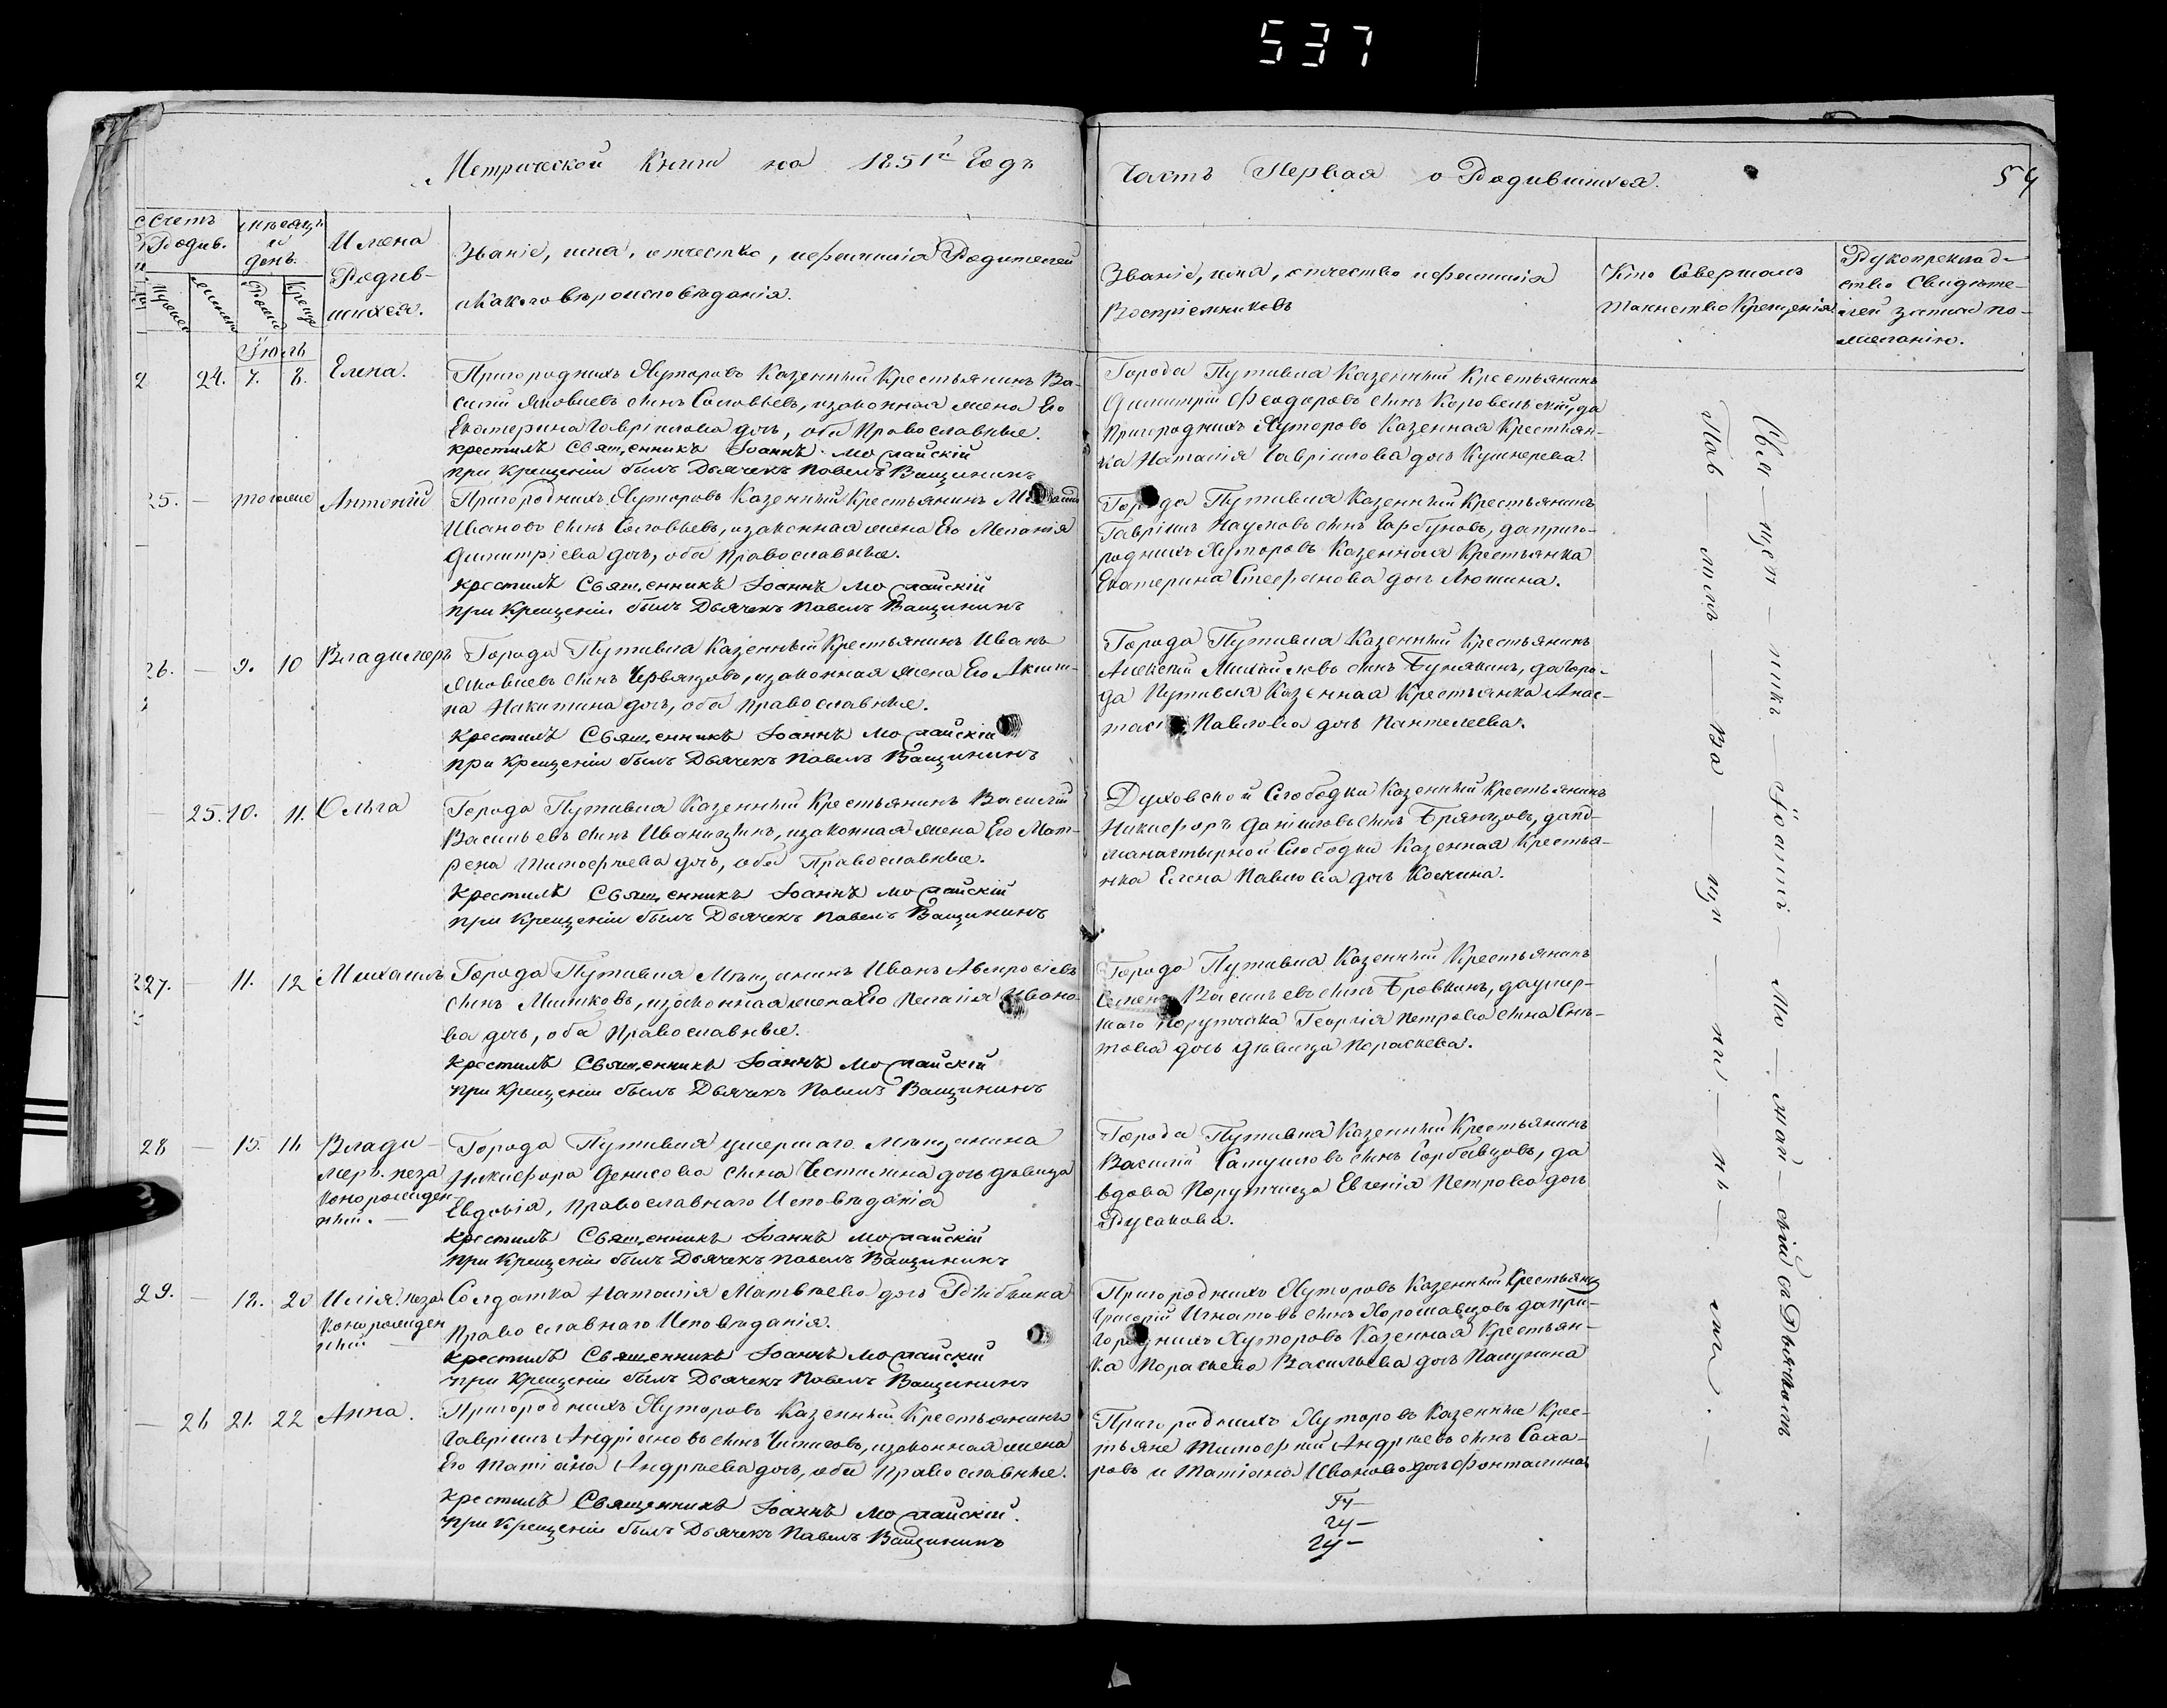 537
Метрической Книги на 1851й Годъ
Часть Первая о Родившихся.
54
Счетъ Родив.
мѣсяцъ и день.
Имена Родившихся.
Званіе, имя, отчество, и фамилія Родителей
и какого вѣроисповѣданія.
Званіе, имя, отчество и фамилія
Воспріемниковъ
Кто Совершалъ
Таинство Крещенія
Рукоприклад-
ство Свидѣте-
лей записи по
желанію.
Іюль
24. 7. 8. Елена.
Пригородныхъ Хуторовъ Казенный Крестьянинъ Ва-
силій Яковлевъ сынъ Соловьевъ, и законная жена Его
Екатерина Гавріилова дочь, оба Православные.
Крестилъ Священникъ Іоаннъ Можайскій
При Крещеніи былъ Дьячекъ Павелъ Ващининъ
Города Путивля Казенный Крестьянинъ
Димитрій Феодоровъ сынъ Коровельскій, да
Пригородныхъ Хуторовъ Казенная Крестьян-
ка Наталія Гавріилова дочь Кушнерева
25. — тогоже Антоній
Пригородныхъ Хуторовъ Казенный Крестьянинъ
Ивановъ сынъ Соловьевъ, и законная жена Его Меланія
Димитріева дочь, оба Православные.
Крестилъ Священникъ Іоаннъ Можайскій
При Крещеніи былъ Дьячекъ Павелъ Ващининъ
Города Путивля Казенный Крестьянинъ
Гавріилъ Наумовъ сынъ Горбуновъ, да приго-
родныхъ Хуторовъ Казенная Крестьянка
Екатерина Стефанова дочь Лютина.
26. — 9. 10 Владимеръ
Города Путивля Казенный Крестьянинъ Иванъ
Яковлевъ сынъ Червяцовъ, и законная жена Его Акили-
на Никитина дочь, оба Православные.
Крестилъ Священникъ Іоаннъ Можайскій
При Крещеніи былъ Дьячекъ Павелъ Ващининъ
Города Путивля Казенный Крестьянинъ
Алексій Михайловъ сынъ Бунякинъ, да Горо-
да Путивля Казенная Крестьянка Анас-
тасія Павлова дочь Пантелеева.
— 25. 10. 11. Ольга
Города Путивля Казенный Крестьянинъ Василій
Васильевъ сынъ Иваницынъ, и законная жена Его Мат-
рена Тимофѣева дочь, оба Православные.
Крестилъ Священникъ Іоаннъ Можайскій
При Крещеніи былъ Дьячекъ Павелъ Ващининъ
Духовской Слободки Казенный Крестьянинъ
Никифоръ Даніиловъ сынъ Брянцовъ, да под-
манастырной Слободки Казенная Крестья-
нка Елена Павлова дочь Кожина.
27. — 11. 12 Михаилъ
Города Путивля Мѣщанинъ Иванъ Амвросіевъ
сынъ Мишковъ, и законная жена Его Пелагія Ивано-
ва дочь, оба Православные.
Крестилъ Священникъ Іоаннъ Можайскій
При Крещеніи былъ Дьячекъ Павелъ Ващининъ
Города Путивля Казенный Крестьянинъ
Семенъ Васильевъ сынъ Бровкинъ, да умер-
шаго Порутчика Георгія Петрова сына Сни-
това дочь дѣвица Параскева.
28 — 15. 16 Влади-
меръ. неза
коннорожден-
ный. —
Города Путивля умершаго Мѣщанина
Никифора Денисова сына Честилина дочь дѣвица
Евдокія, Православнаго Исповѣданія
Крестилъ Священникъ Іоаннъ Можайскій
При Крещеніи былъ Дьячекъ Павелъ Ващининъ
Города Путивля Казенный Крестьянинъ
Василій Самуиловъ сынъ Горбавцовъ, да
вдова Порутчица Евгенія Петрова дочь
Русанова.
29. — 18. 20 Илія. неза
коннорожден
ный —
Солдатка Наталія Матвѣева дочь Рыбкина
Православнаго Исповѣданія.
Крестилъ Священникъ Іоаннъ Можайскій
При Крещеніи былъ Дьячекъ Павелъ Ващининъ
Пригородныхъ Хуторовъ Казенный Крестьянинъ
Григорій Игнатовъ сынъ Хорошавцовъ да при-
городныхъ Хуторовъ Казенная Крестьян-
ка Параскева Васильева дочь Пашунина
— 26 21. 22 Анна.
Пригородныхъ Хуторовъ Казенный Крестьянинъ
Гавріилъ Андріановъ сынъ Чипиговъ, и законная жена
Его Татіана Андрѣева дочь, оба Православные.
Крестилъ Священникъ Іоаннъ Можайскій.
При Крещеніи былъ Дьячекъ Павелъ Ващининъ
Пригородныхъ Хуторовъ Казенные Крес-
тьяне Тимофей Андрѣевъ сынъ Сама-
ровъ и Татіана Иванова дочь Фонталина
Свя — щен — никъ — Іоаннъ — Мо — жай — скій съ Дьячкомъ
Пав — ломъ — Ва — щи — ни — нъ — мъ. —